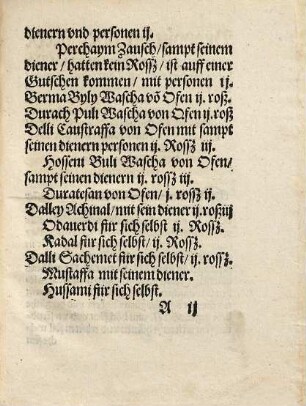 dienern vnd personen ij.
Perchaym Zausch/ sampt seinem
diener/ hatten kein Rossz/ ist auff einer
Gutschen kommen/ mit personen ij.
Berma Byly Wascha võ Ofen ij. roß.
Durach Puli Wascha von Ofen ij. roß
Delli Caustraffa von Ofen mit sampt
seinen dienern personen ij. Rossz iij.
Hosseni Buli Wascha von Ofen/
sampt seinen dienern ij. rossz iij.
Duratesan von Ofen/ j. rossz ij.
Dalley Achmal/ mit sein diener ij. roß iij
Odauerdi für sich selbst ij. Rossz.
Kadal für sich selbst/ ij. Rossz.
Dalli Sachemet für sich selbst/ ij. rossz.
Mustaffa mit seinem diener.
Hussami für sich selbst.
A ij